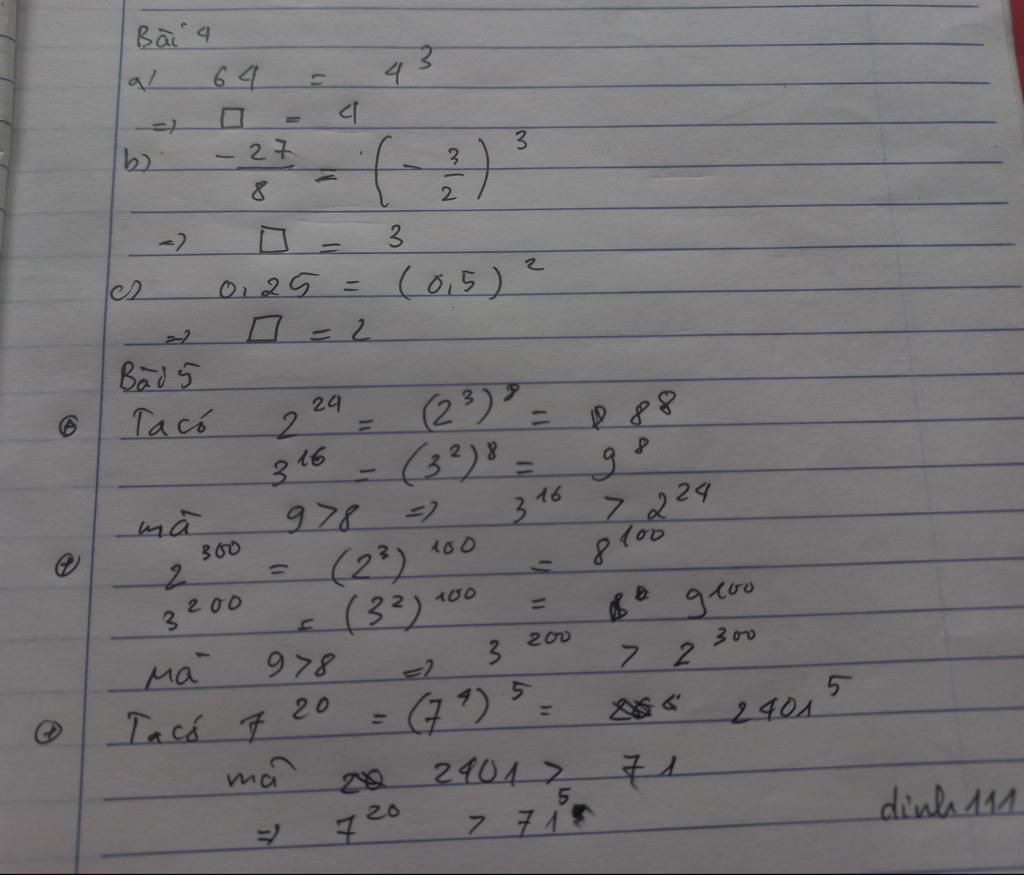 Bài 4
a/ 64 = 4³
=> □ = 4
b) -27/8 = (-3/2)³
=> □ = 3
c) 0,25 = (0,5)²
=> □ = 2
Bài 5
Ta có 2²⁴ = (2³)⁸ = 8⁸
3¹⁶ = (3²)⁸ = 9⁸
mà 9>8 => 3¹⁶ > 2²⁴
2³⁰⁰ = (2³)¹⁰⁰ = 8¹⁰⁰
3²⁰⁰ = (3²)¹⁰⁰ = 9¹⁰⁰
Mà 9>8 => 3²⁰⁰ > 2³⁰⁰
Ta có 7²⁰ = (7⁴)⁵ = 2401⁵
mà 2401 > 71
=> 7²⁰ > 71⁵
dinh111